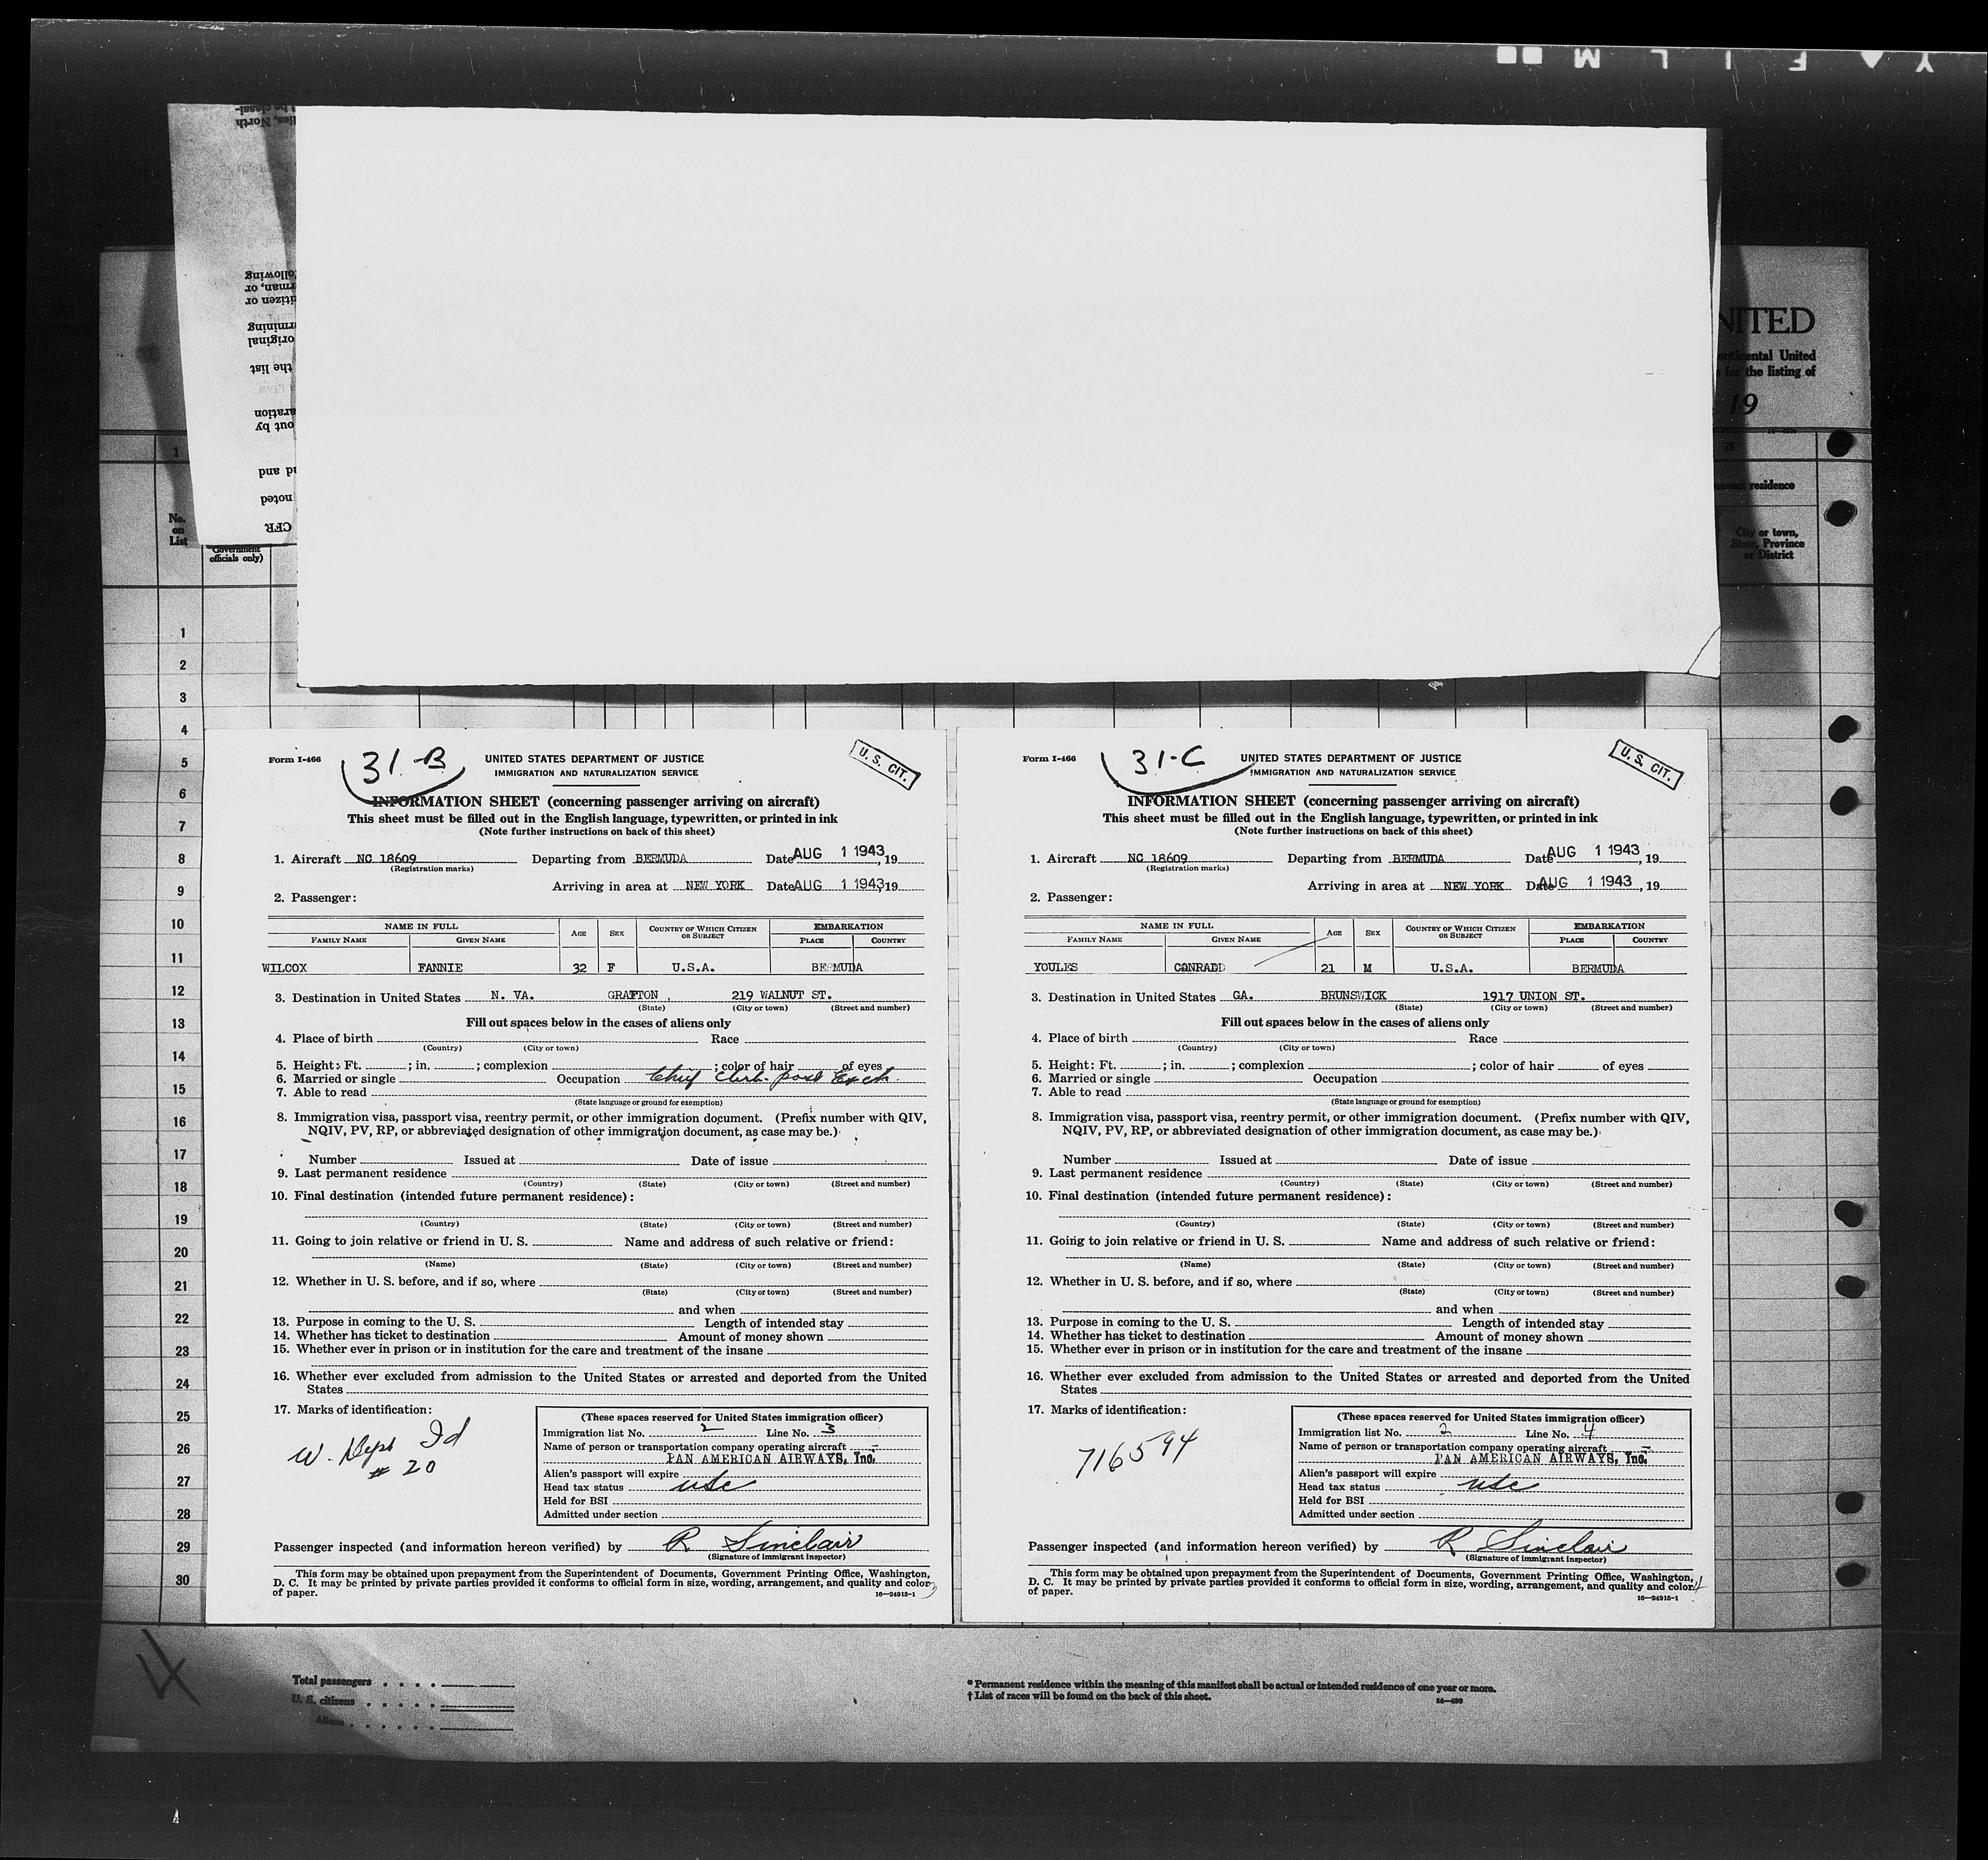 Y A F I L M
NITED
Continental United
for the listing of
19
No.
on
List
Government
officials only)
residence
City or town,
State, Province
or District
1
2
3
4
5
6
7
8
9
10
11
12
13
14
15
16
17
18
19
20
21
22
23
24
25
26
27
28
29
30
Form I-466
31-B
UNITED STATES DEPARTMENT OF JUSTICE
IMMIGRATION AND NATURALIZATION SERVICE
U. S. CIT.
INFORMATION SHEET (concerning passenger arriving on aircraft)
This sheet must be filled out in the English language, typewritten, or printed in ink
(Note further instructions on back of this sheet)
1. Aircraft NC 18609 Departing from BERMUDA Date AUG 1 1943, 19
(Registration marks)
Arriving in area at NEW YORK Date AUG 1 1943 19
2. Passenger:
NAME IN FULL AGE SEX COUNTRY OF WHICH CITIZEN OR SUBJECT EMBARKATION
FAMILY NAME GIVEN NAME PLACE COUNTRY
WILCOX FANNIE 32 F U.S.A. BERMUDA
3. Destination in United States N. VA. GRAFTON, 219 WALNUT ST.
(State) (City or town) (Street and number)
Fill out spaces below in the cases of aliens only
4. Place of birth Race
(Country) (City or town)
5. Height: Ft. ; in. ; complexion ; color of hair of eyes
6. Married or single Occupation Chief Clerk. post Exch.
7. Able to read
(State language or ground for exemption)
8. Immigration visa, passport visa, reentry permit, or other immigration document. (Prefix number with QIV,
NQIV, PV, RP, or abbreviated designation of other immigration document, as case may be.)
Number Issued at Date of issue
9. Last permanent residence
(Country) (State) (City or town) (Street and number)
10. Final destination (intended future permanent residence):
(Country) (State) (City or town) (Street and number)
11. Going to join relative or friend in U. S. Name and address of such relative or friend:
(Name) (State) (City or town) (Street and number)
12. Whether in U. S. before, and if so, where
(State) (City or town) (Street and number)
and when
13. Purpose in coming to the U. S. Length of intended stay
14. Whether has ticket to destination Amount of money shown
15. Whether ever in prison or in institution for the care and treatment of the insane
16. Whether ever excluded from admission to the United States or arrested and deported from the United
States
17. Marks of identification:
W. Dept Id
# 20
(These spaces reserved for United States immigration officer)
Immigration list No. 2 Line No. 3
Name of person or transportation company operating aircraft
PAN AMERICAN AIRWAYS, Inc.
Alien's passport will expire
Head tax status usc
Held for BSI
Admitted under section
Passenger inspected (and information hereon verified) by R Sinclair
(Signature of immigrant inspector)
This form may be obtained upon prepayment from the Superintendent of Documents, Government Printing Office, Washington,
D. C. It may be printed by private parties provided it conforms to official form in size, wording, arrangement, and quality and color
of paper.
16—24915-1
3
Form I-466
31-C
UNITED STATES DEPARTMENT OF JUSTICE
IMMIGRATION AND NATURALIZATION SERVICE
U. S. CIT.
INFORMATION SHEET (concerning passenger arriving on aircraft)
This sheet must be filled out in the English language, typewritten, or printed in ink
(Note further instructions on back of this sheet)
1. Aircraft NC 18609 Departing from BERMUDA Date AUG 1 1943, 19
(Registration marks)
Arriving in area at NEW YORK Date AUG 1 1943, 19
2. Passenger:
NAME IN FULL AGE SEX COUNTRY OF WHICH CITIZEN OR SUBJECT EMBARKATION
FAMILY NAME GIVEN NAME PLACE COUNTRY
YOULES CONRADD 21 M U.S.A. BERMUDA
3. Destination in United States GA. BRUNSWICK 1917 UNION ST.
(State) (City or town) (Street and number)
Fill out spaces below in the cases of aliens only
4. Place of birth Race
(Country) (City or town)
5. Height: Ft. ; in. ; complexion ; color of hair of eyes
6. Married or single Occupation
7. Able to read
(State language or ground for exemption)
8. Immigration visa, passport visa, reentry permit, or other immigration document. (Prefix number with QIV,
NQIV, PV, RP, or abbreviated designation of other immigration document, as case may be.)
Number Issued at Date of issue
9. Last permanent residence
(Country) (State) (City or town) (Street and number)
10. Final destination (intended future permanent residence):
(Country) (State) (City or town) (Street and number)
11. Going to join relative or friend in U. S. Name and address of such relative or friend:
(Name) (State) (City or town) (Street and number)
12. Whether in U. S. before, and if so, where
(State) (City or town) (Street and number)
and when
13. Purpose in coming to the U. S. Length of intended stay
14. Whether has ticket to destination Amount of money shown
15. Whether ever in prison or in institution for the care and treatment of the insane
16. Whether ever excluded from admission to the United States or arrested and deported from the United
States
17. Marks of identification:
716594
(These spaces reserved for United States immigration officer)
Immigration list No. 2 Line No. 4
Name of person or transportation company operating aircraft
PAN AMERICAN AIRWAYS, Inc.
Alien's passport will expire
Head tax status usc
Held for BSI
Admitted under section
Passenger inspected (and information hereon verified) by R Sinclair
(Signature of immigrant inspector)
This form may be obtained upon prepayment from the Superintendent of Documents, Government Printing Office, Washington,
D. C. It may be printed by private parties provided it conforms to official form in size, wording, arrangement, and quality and color
of paper.
16—24915-1
4
Total passengers
U. S. citizens
Aliens
* Permanent residence within the meaning of this manifest shall be actual or intended residence of one year or more.
† List of races will be found on the back of this sheet.